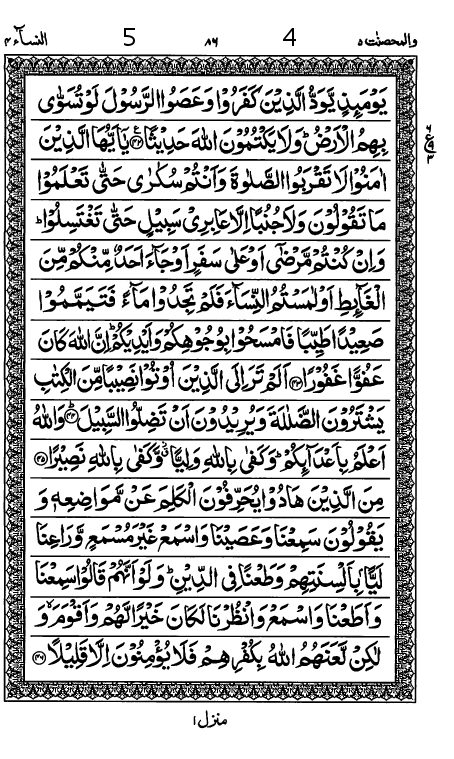 والمحصنت ٥ 4 ٨٦ 5 النسآء ٤
يَوْمَئِذٍ يَّوَدُّ الَّذِيْنَ كَفَرُوْا وَعَصَوُا الرَّسُوْلَ لَوْ تُسَوّٰى
بِهِمُ الْاَرْضُ ؕ وَلَا يَكْتُمُوْنَ اللّٰهَ حَدِيْثًا ﴿۴۲﴾ يٰۤاَيُّهَا الَّذِيْنَ
اٰمَنُوْا لَا تَقْرَبُوا الصَّلٰوةَ وَاَنْتُمْ سُكٰرٰى حَتّٰى تَعْلَمُوْا
مَا تَقُوْلُوْنَ وَلَا جُنُبًا اِلَّا عَابِرِيْ سَبِيْلٍ حَتّٰى تَغْتَسِلُوْا ؕ
وَاِنْ كُنْتُمْ مَّرْضٰۤى اَوْ عَلٰى سَفَرٍ اَوْ جَآءَ اَحَدٌ مِّنْكُمْ مِّنَ
الْغَآئِطِ اَوْ لٰمَسْتُمُ النِّسَآءَ فَلَمْ تَجِدُوْا مَآءً فَتَيَمَّمُوْا
صَعِيْدًا طَيِّبًا فَامْسَحُوْا بِوُجُوْهِكُمْ وَاَيْدِيْكُمْ ؕ اِنَّ اللّٰهَ كَانَ
عَفُوًّا غَفُوْرًا ﴿۴۳﴾ اَلَمْ تَرَ اِلَى الَّذِيْنَ اُوْتُوْا نَصِيْبًا مِّنَ الْكِتٰبِ
يَشْتَرُوْنَ الضَّلٰلَةَ وَيُرِيْدُوْنَ اَنْ تَضِلُّوا السَّبِيْلَ ﴿۴۴﴾ وَاللّٰهُ
اَعْلَمُ بِاَعْدَآئِكُمْ ؕ وَكَفٰى بِاللّٰهِ وَلِيًّا ۙ وَّكَفٰى بِاللّٰهِ نَصِيْرًا ﴿۴۵﴾
مِنَ الَّذِيْنَ هَادُوْا يُحَرِّفُوْنَ الْكَلِمَ عَنْ مَّوَاضِعِهٖ وَ
يَقُوْلُوْنَ سَمِعْنَا وَعَصَيْنَا وَاسْمَعْ غَيْرَ مُسْمَعٍ وَّرَاعِنَا
لَيًّۢا بِاَلْسِنَتِهِمْ وَطَعْنًا فِى الدِّيْنِ ؕ وَلَوْ اَنَّهُمْ قَالُوْا سَمِعْنَا
وَاَطَعْنَا وَاسْمَعْ وَانْظُرْنَا لَكَانَ خَيْرًا لَّهُمْ وَاَقْوَمَ ۙ وَ
لٰكِنْ لَّعَنَهُمُ اللّٰهُ بِكُفْرِهِمْ فَلَا يُؤْمِنُوْنَ اِلَّا قَلِيْلًا ﴿۴۶﴾
منزل ۱